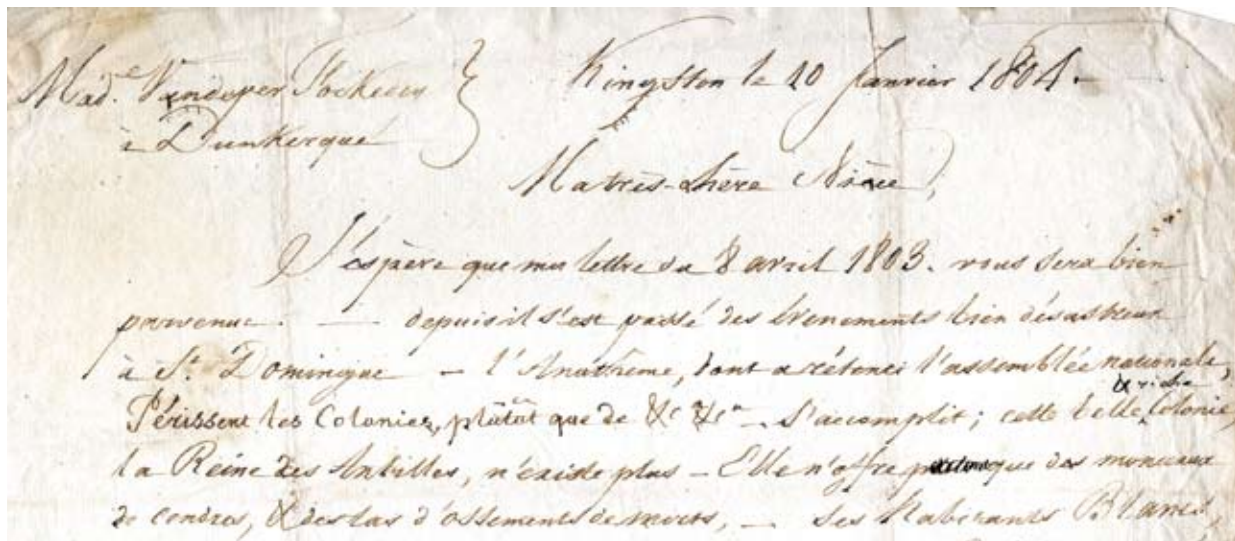 Mad.e V.e à Kingston le 10 Janvier 1804.
à Dunkerque
Ma très-chère Nièce,
J'éspère que ma lettre du 8 avril 1803. vous sera bien
parvenue. — depuis il s'est passé des évenements bien désastreux
à St. Dominique — l'Anathême, dont a rétenti l'assemblée nationale,
& riche
Périssent les Colonies, plûtôt que de &c &c.a — S'accomplit; cette belle Colonie,
la Reine des Antilles, n'existe plus — Elle n'offre que des monceaux
de cendres, & des tas d'ossements de morts, — ses habitants Blancs,